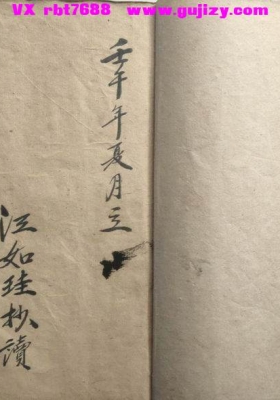 VX rbt7688 www.gujizy.com
壬午年夏月立
江如珪抄讀